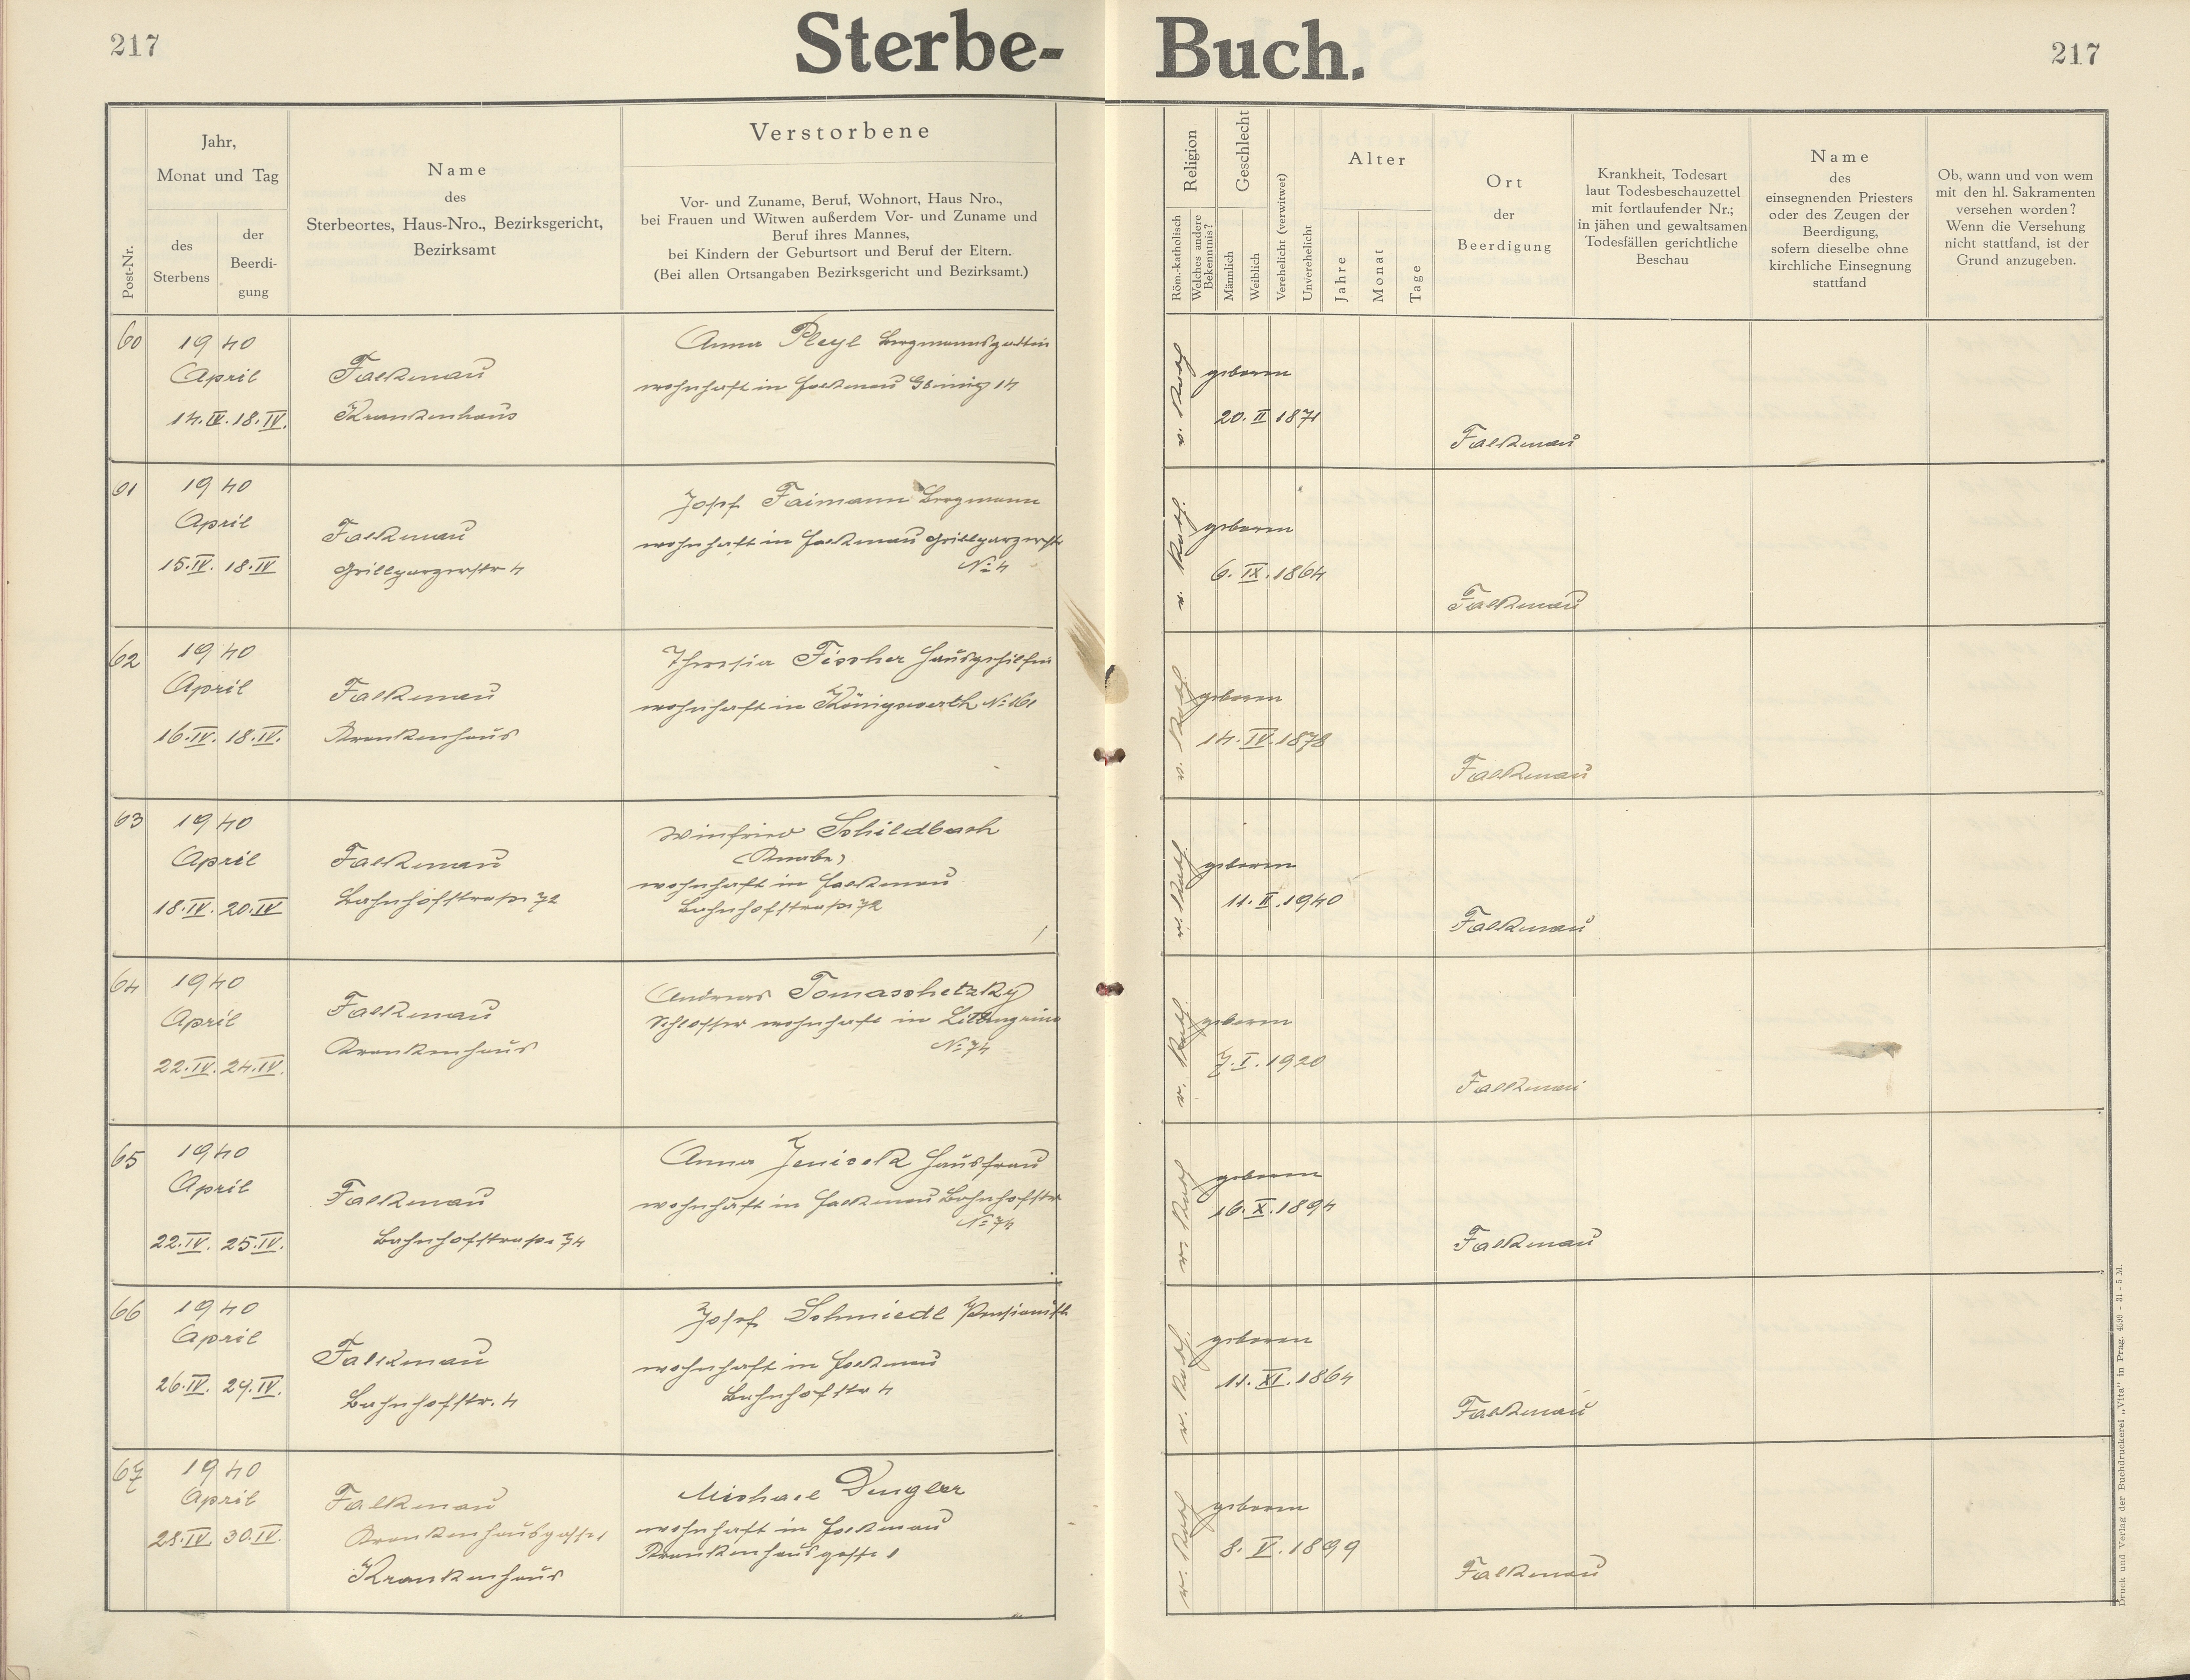 217
Sterbe- Buch.
217
Post-Nr.
Jahr,
Monat und Tag
des
Sterbens
der
Beerdi-
gung
Name
des
Sterbeortes, Haus-Nro., Bezirksgericht,
Bezirksamt
Verstorbene
Vor- und Zuname, Beruf, Wohnort, Haus Nro.,
bei Frauen und Witwen außerdem Vor- und Zuname und
Beruf ihres Mannes,
bei Kindern der Geburtsort und Beruf der Eltern.
(Bei allen Ortsangaben Bezirksgericht und Bezirksamt.)
Religion
Röm.-katholisch
Welches andere
Bekenntnis?
Geschlecht
Männlich
Weiblich
Verehelicht (verwitwet)
Unverehelicht
Alter
Jahre
Monat
Tage
Ort
der
Beerdigung
Krankheit, Todesart
laut Todesbeschauzettel
mit fortlaufender Nr.;
in jähen und gewaltsamen
Todesfällen gerichtliche
Beschau
Name
des
einsegnenden Priesters
oder des Zeugen der
Beerdigung,
sofern dieselbe ohne
kirchliche Einsegnung
stattfand
Ob, wann und von wem
mit den hl. Sakramenten
versehen worden?
Wenn die Versehung
nicht stattfand, ist der
Grund anzugeben.
60
1940
April
14.IV. 18.IV.
Falkenau
Krankenhaus
Anna Pleyl Bergmannsgattin
wohnhaft in Falkenau 14
geboren
20. II 1871
Falkenau
61
1940
April
15.IV. 18.IV
Falkenau
Grillparzerstr 4
Josef Faimann Bergmann
wohnhaft in Falkenau Grillparzerstr
No 4
geboren
6. IX. 1864
Falkenau
62
1940
April
16.IV. 18.IV.
Falkenau
Krankenhaus
Theresia Fischer Hausgehilfin
wohnhaft in Königswerth No 161
geboren
14. IV. 1878
Falkenau
63
1940
April
18.IV. 20.IV
Falkenau
Bahnhofstraße 72
Winfried Schildbach
(Knabe)
wohnhaft in Falkenau
Bahnhofstraße 72
geboren
11. II. 1940
Falkenau
64
1940
April
22.IV. 24.IV.
Falkenau
Krankenhaus
Andreas Tomaschetzky
Schlosser wohnhaft in Littengrün
No 74
geboren
7. I. 1920
Falkenau
65
1940
April
22.IV. 25.IV.
Falkenau
Bahnhofstraße 74
Anna Jenicek Hausfrau
wohnhaft in Falkenau Bahnhofstr
No 74
geboren
16. X. 1894
Falkenau
66
1940
April
26.IV. 29.IV.
Falkenau
Bahnhofstr. 4
Josef Schmiedl Pensionist
wohnhaft in Falkenau
Bahnhofstr 4
geboren
11. XI. 1864
Falkenau
67
1940
April
28.IV. 30.IV.
Falkenau
Krankenhausgasse 1
Krankenhaus
Michael Dengler
wohnhaft in Falkenau
Krankenhausgasse 1
geboren
8. V. 1899
Falkenau
Druck und Verlag der Buchdruckerei „Vita" in Prag.